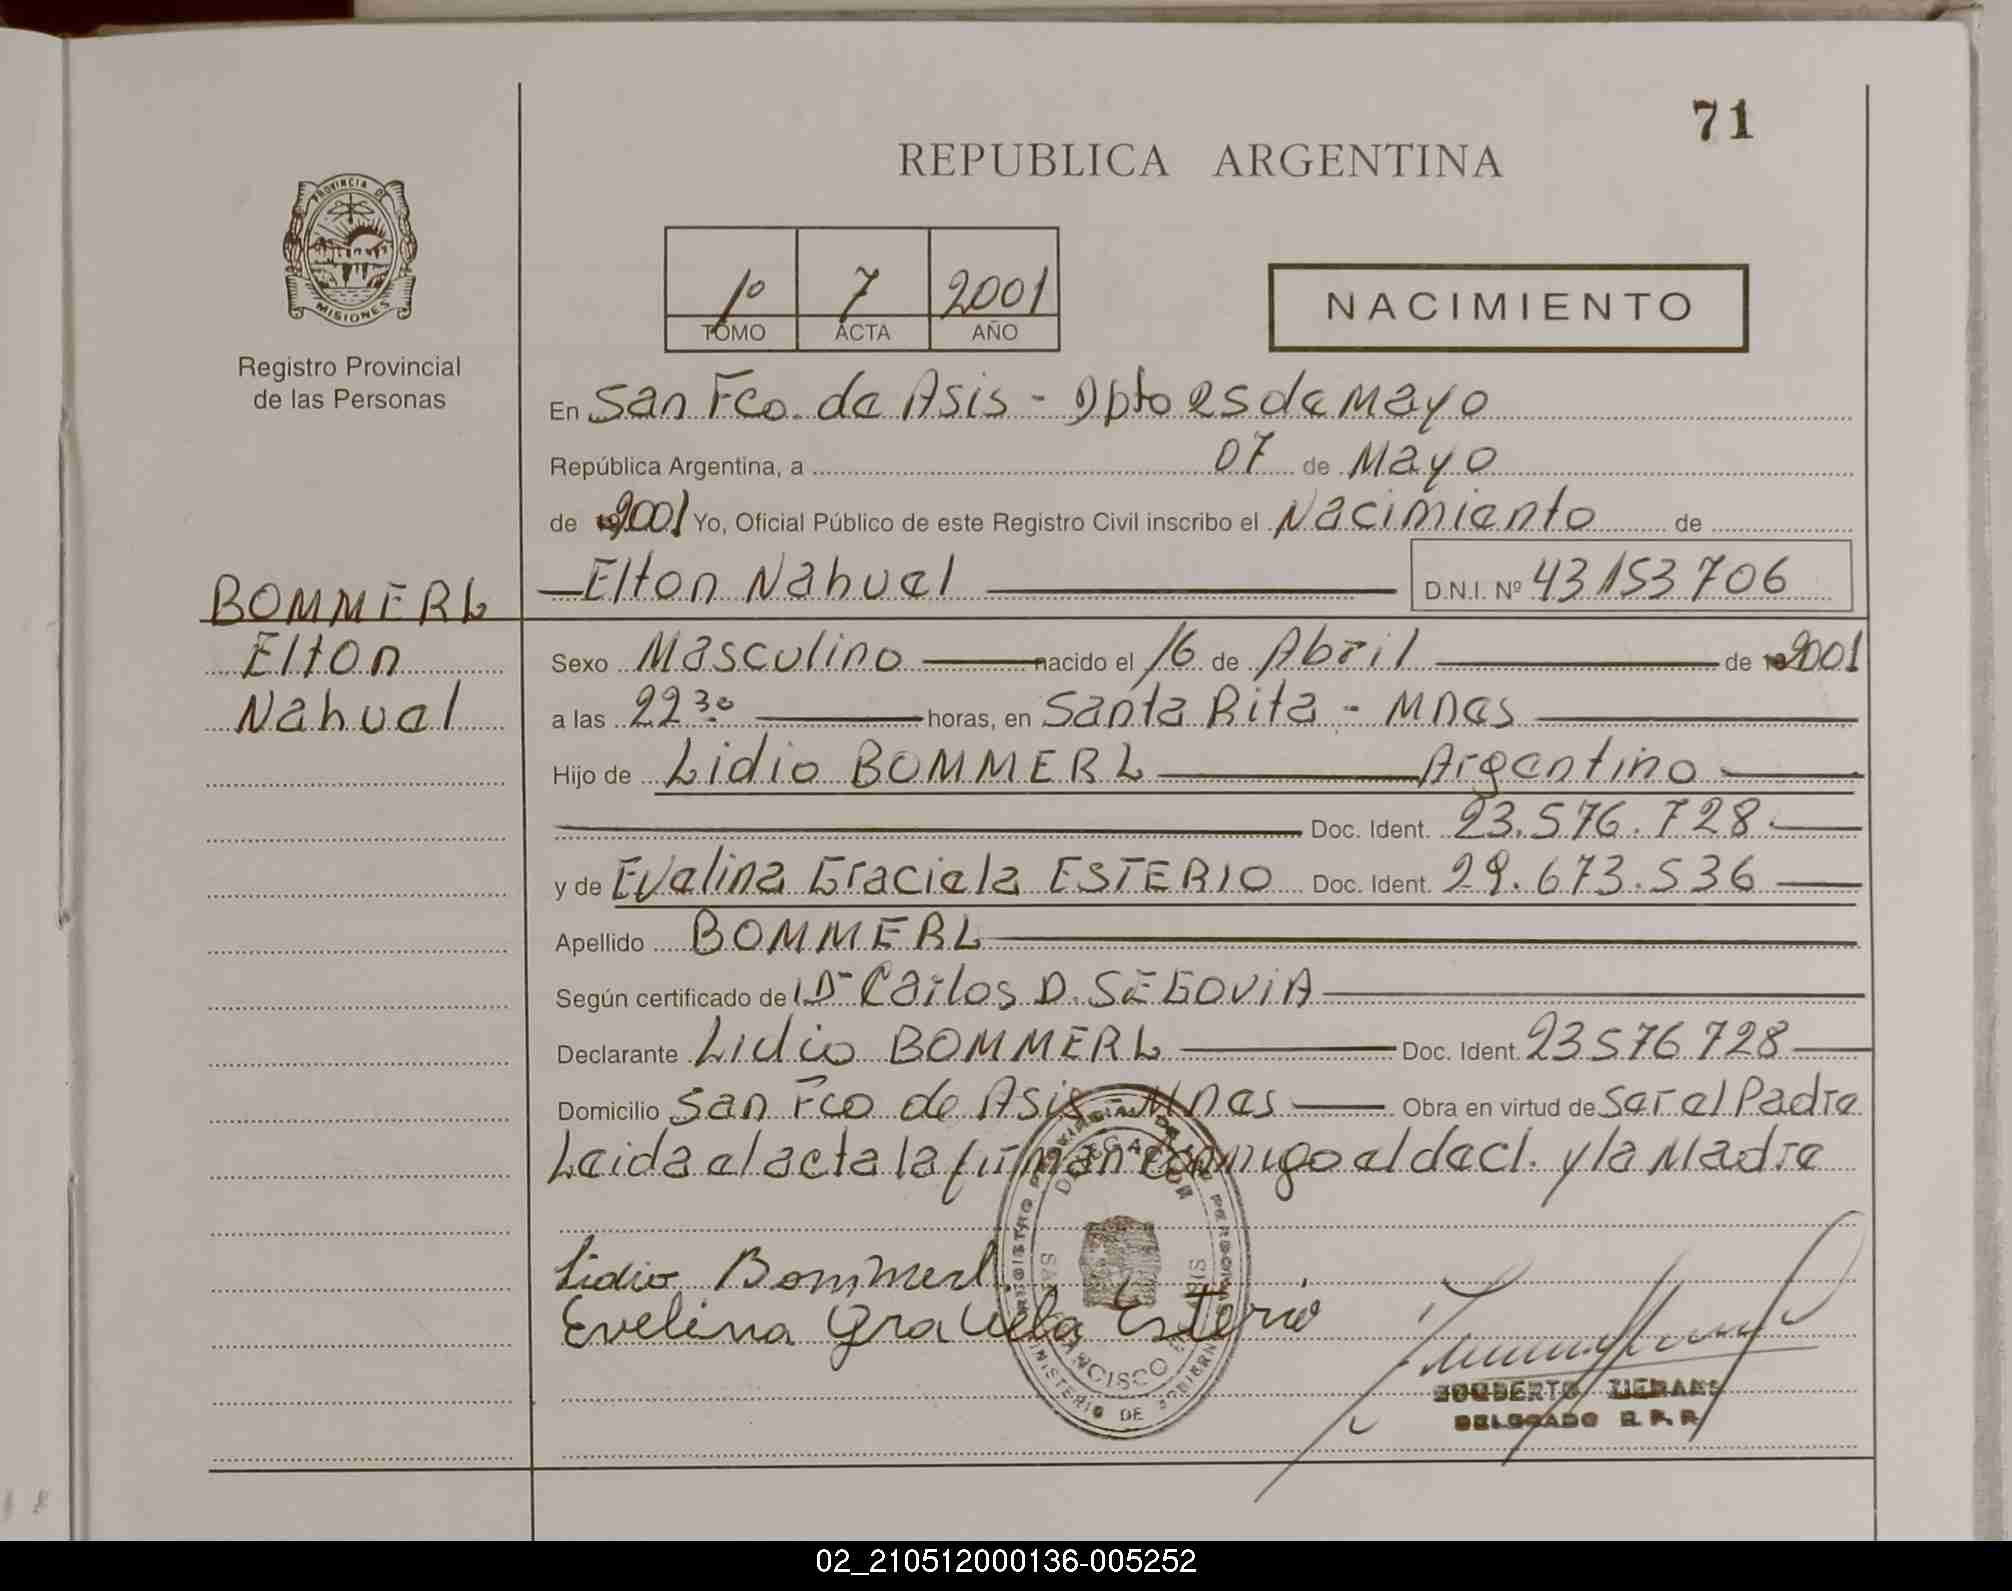 71
REPUBLICA ARGENTINA
PROVINCIA DE
MISIONES
Registro Provincial
de las Personas
1º 7 2001
TOMO ACTA AÑO
NACIMIENTO
En San Fco. de Asis - Dpto 25 de Mayo
República Argentina, a 07 de Mayo
de 2001 Yo, Oficial Público de este Registro Civil inscribo el Nacimiento de
Elton Nahuel D.N.I. Nº 43153706
BOMMERL
Elton
Nahuel
Sexo Masculino nacido el 16 de Abril de 2001
a las 22 30 horas, en Santa Rita - Mnes
Hijo de Lidio BOMMERL Argentino
Doc. Ident. 23.576.728.
y de Evelina Graciela ESTERIO Doc. Ident. 29.673.536
Apellido BOMMERL
Según certificado de Dr Carlos D. SEGOVIA
Declarante Lidio BOMMERL Doc. Ident. 23576728
Domicilio San Fco de Asis - Mnes Obra en virtud de Ser el Padre
Leida el acta la firman conmigo el decl. y la Madre
Lidio Bommerl
Evelina Graciela Esterio
DELEGADO R.P.P.
02_210512000136-005252